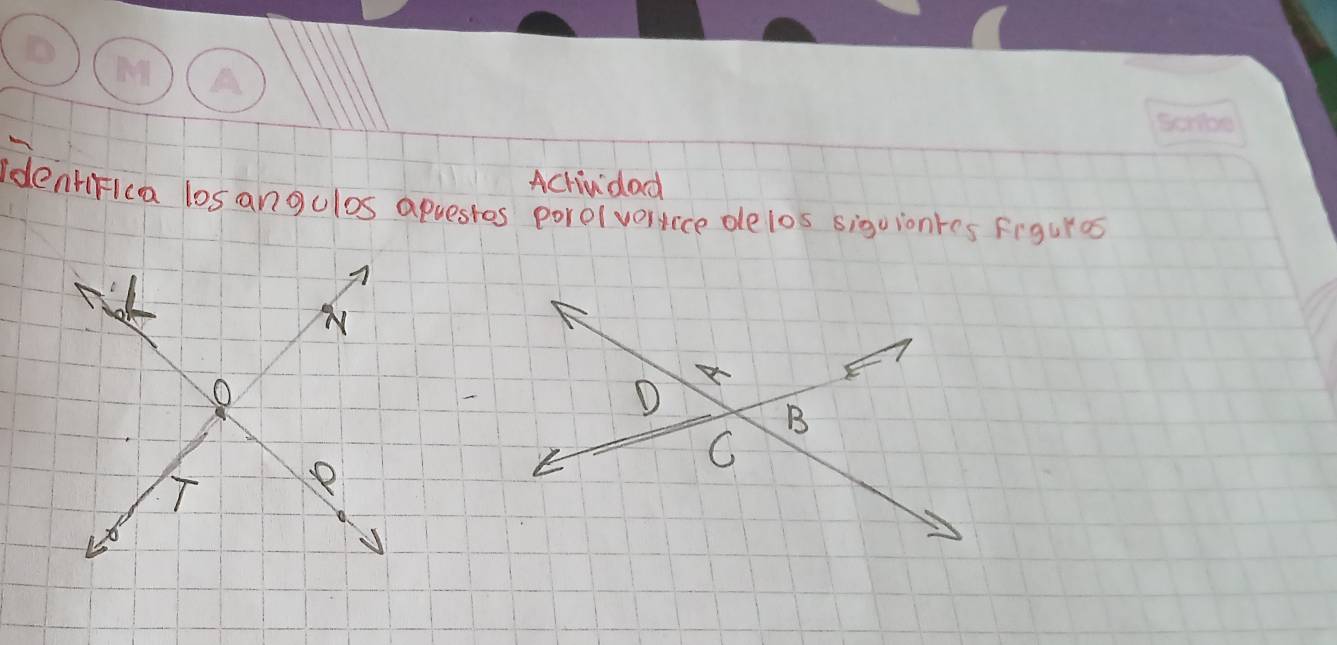 D M A
Scribe
Actividad
identifica los angulos apuestos por el vertice de los siguientes figuras
N
O
T
P
A
D
B
C